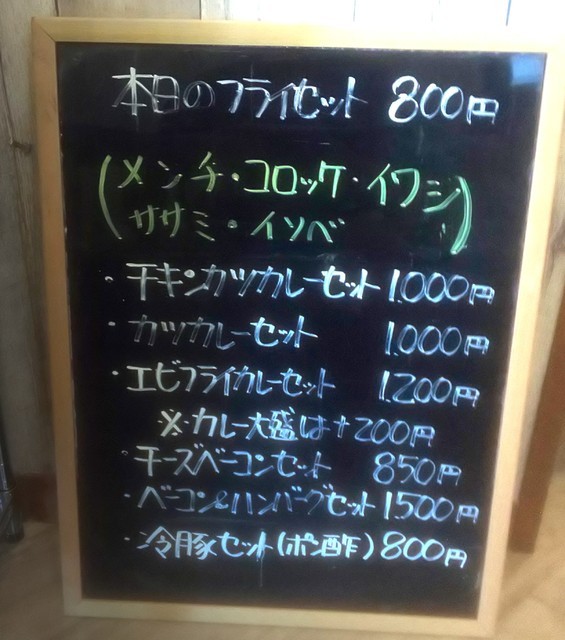 本日のフライセット 800円
(メンチ・コロッケ・イワシ
ササミ・イソベ)
・チキンカツカレーセット 1,000円
・カツカレーセット 1,000円
・エビフライカレーセット 1,200円
※カレー大盛は+200円
・チーズベーコンセット 850円
・ベーコン&ハンバーグセット 1,500円
・冷豚セット(ポン酢) 800円